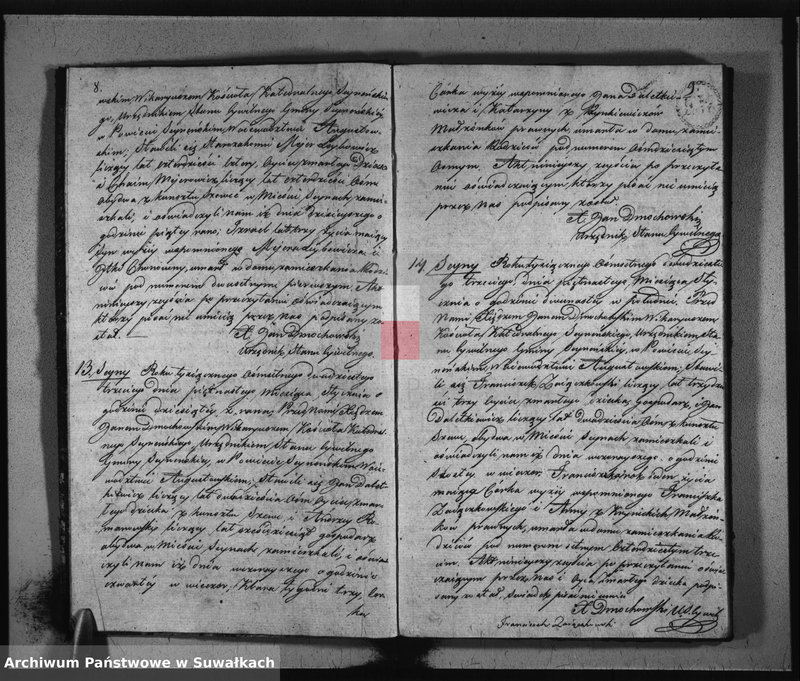 8.
wskim Wikaryuszem Kościoła Katedralnego Seyneńskie-
go, Urzędnikiem Stanu Cywilnego Gminy Seyneńskiey
w Powiecie Seyneńskim Woiewództwie Augustow-
skim, Stawili się Mejer Leybowicz
liczący lat czterdzieści trzy, Oyciec zmarłego Dziecka
i Chaim Mejerowicz liczący lat czterdzieści Ośm
obydwa z kunsztu Szewce w Mieście Seynach zamie-
szkali, i oświadczyli nam iż dnia dzisieyszego o
godzinie piątey rano, Izrael lat trzy życia maiący
Syn wyżey wspomnionego Mejera Leybowicza i
umarł w domu zamieszkania Rodzi-
ców pod numerem dwusetnym pierwszym. Akt
ninieyszy zeyścia po przeczytaniu oświadczaiącym
którzy pisać nie umieią przez nas podpisany zo-
stał.
X. Jan Dmochowski
Urzędnik Stanu Cywilnego.
13. Seyny Roku tysiącznego Ośmsetnego dwudziestego
trzeciego dnia piętnastego Miesiąca Stycznia o
godzinie dziesiątey z rana, Przed Nami Xiędzem
Janem Dmochowskim Wikaryuszem Kościoła Katedral-
nego Seyneńskiego, Urzędnikiem Stanu Cywilnego
Gminy Seyneńskiey, w Powiecie Seyneńskim Woie-
wództwie Augustowskim, Stawili się Jan Dalet-
kiewicz liczący lat dwadzieścia Ośm Oyciec zmar-
łego dziecka z kunsztu Szewc i Andrzey
liczący lat sześćdziesiąt gospodarz
obydwa w Mieście Seynach zamieszkali, i oświad-
czyli nam iż dnia wczorayszego o godzinie
czwartey w wieczor, Klara tygodni trzy, Cor-
ka
9.
Córka wyżey wspomnionego Jana Daletkie-
wicza i Katarzyny z Rynkiewiczów
Małżonków prawych, umarła w domu zamie-
szkania Rodziców pod numerem Ośmdziesiątym
Ośmym, Akt ninieyszy zeyścia po przeczyta-
niu oświadczaiącym którzy pisać nie umieią
przez Nas podpisany został
X. Jan Dmochowski
Urzędnik Stanu Cywilnego.
14. Seyny Roku tysiącznego Ośmsetnego dwudzieste-
go trzeciego, dnia piętnastego Miesiąca Sty-
cznia o godzinie dwunastey w południe. Przed
Nami Xiędzem Janem Dmochowskim Wikaryuszem
Kościoła Katedralnego Seyneńskiego, Urzędnikiem Sta-
nu Cywilnego Gminy Seyneńskiey, w Powiecie Sey-
neńskim, w Woiewództwie Augustowskim, Stawi-
li się Franciszek Zaiączkowski liczący lat trzydzie-
ści trzy Oyciec zmarłego dziecka Gospodarz, i Jan
Daletkiewicz liczący lat dwadzieścia Ośm z kunsztu
Szewc, obydwa w Mieście Seynach zamieszkali i
oświadczyli nam iż dnia wczorayszego, o godzinie
szostey w wieczor, Franciszka życia
maiąca Córka wyżey wspomnionego Franciszka
Zaiączkowskiego i Anny z Małżon-
ków prawych, umarła w domu zamieszkania Ro-
dziców pod numerem setnym czterdziestym trze-
cim. Akt ninieyszy zeyścia po przeczytaniu oświad-
czaiącym przez Nas i Oyca zmarłego dziecka podpi-
sany został, świadek pisać nie umie
X. Dmochowski U.S. Cywil.
Franciszek Zaiączkowski
Archiwum Państwowe w Suwałkach